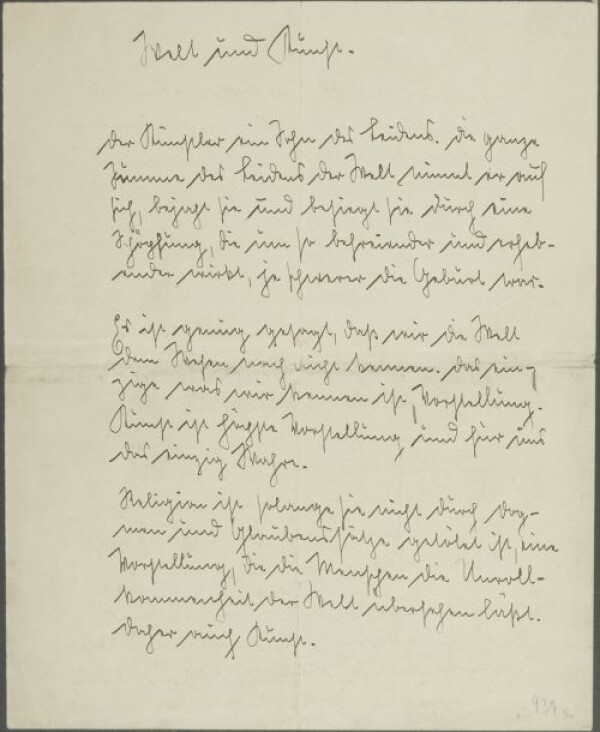 Welt und Kunst.
Der Künstler ein Sohn des Leidens. Die ganze
Summe des Leidens der Welt nimmt er auf
sich, bejaht sie und besiegt sie durch eine
Schöpfung, die um so befreiender und erheb-
ender wirkt, je schwerer die Geburt war.
Es ist genug gesagt, daß wir die Welt
dem Wesen nach nicht kennen. Das ein-
zige was wir kennen ist, Vorstellung.
Kunst ist höchste Vorstellung und für uns
das einzig Wahre.
Religion ist solange sie nicht durch Dog-
men und Glaubenssätze getötet ist, eine
Vorstellung, die die Menschen die Unvoll-
kommenheit der Welt übersehen läßt.
Daher auch Kunst.